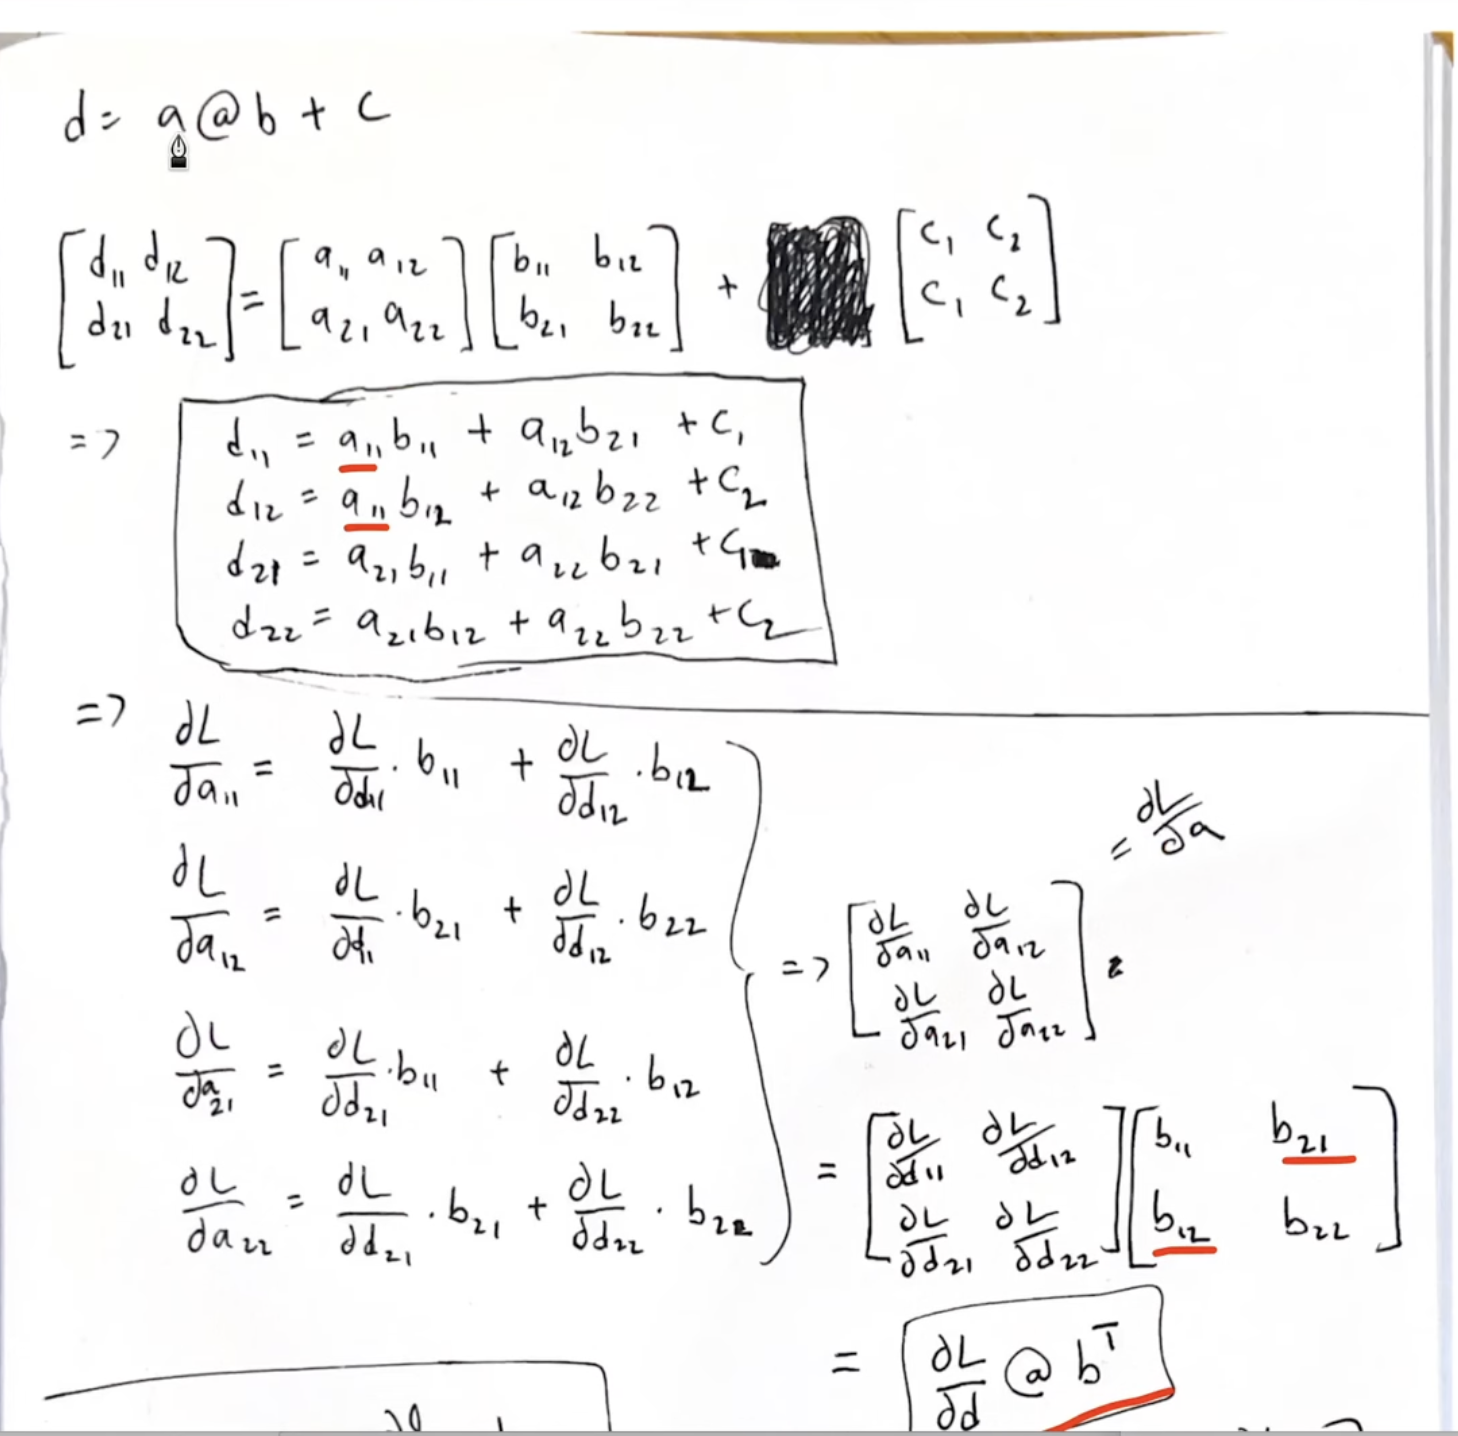 d = a @ b + c
[d₁₁ d₁₂ = [a₁₁ a₁₂ [b₁₁ b₁₂ + [c₁ c₂
d₂₁ d₂₂] a₂₁ a₂₂] b₂₁ b₂₂] c₁ c₂]
=> d₁₁ = a₁₁b₁₁ + a₁₂b₂₁ + c₁
d₁₂ = a₁₁b₁₂ + a₁₂b₂₂ + c₂
d₂₁ = a₂₁b₁₁ + a₂₂b₂₁ + c₁
d₂₂ = a₂₁b₁₂ + a₂₂b₂₂ + c₂
=> ∂L/∂a₁₁ = ∂L/∂d₁₁ · b₁₁ + ∂L/∂d₁₂ · b₁₂
∂L/∂a₁₂ = ∂L/∂d₁₁ · b₂₁ + ∂L/∂d₁₂ · b₂₂
∂L/∂a₂₁ = ∂L/∂d₂₁ · b₁₁ + ∂L/∂d₂₂ · b₁₂
∂L/∂a₂₂ = ∂L/∂d₂₁ · b₂₁ + ∂L/∂d₂₂ · b₂₂
= ∂L/∂a
=> [∂L/∂a₁₁ ∂L/∂a₁₂
∂L/∂a₂₁ ∂L/∂a₂₂]
= [∂L/∂d₁₁ ∂L/∂d₁₂ [b₁₁ b₂₁
∂L/∂d₂₁ ∂L/∂d₂₂] b₁₂ b₂₂]
= ∂L/∂d @ bᵀ